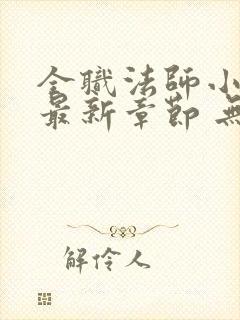 全職法師小
最新章節 無
解伶人